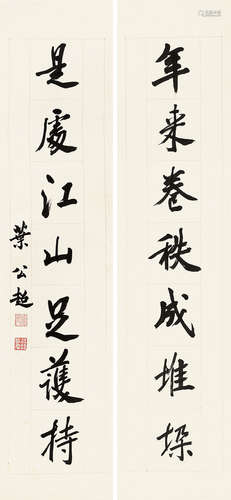 年来卷秩成堆垛
是處江山足護持
葉公超